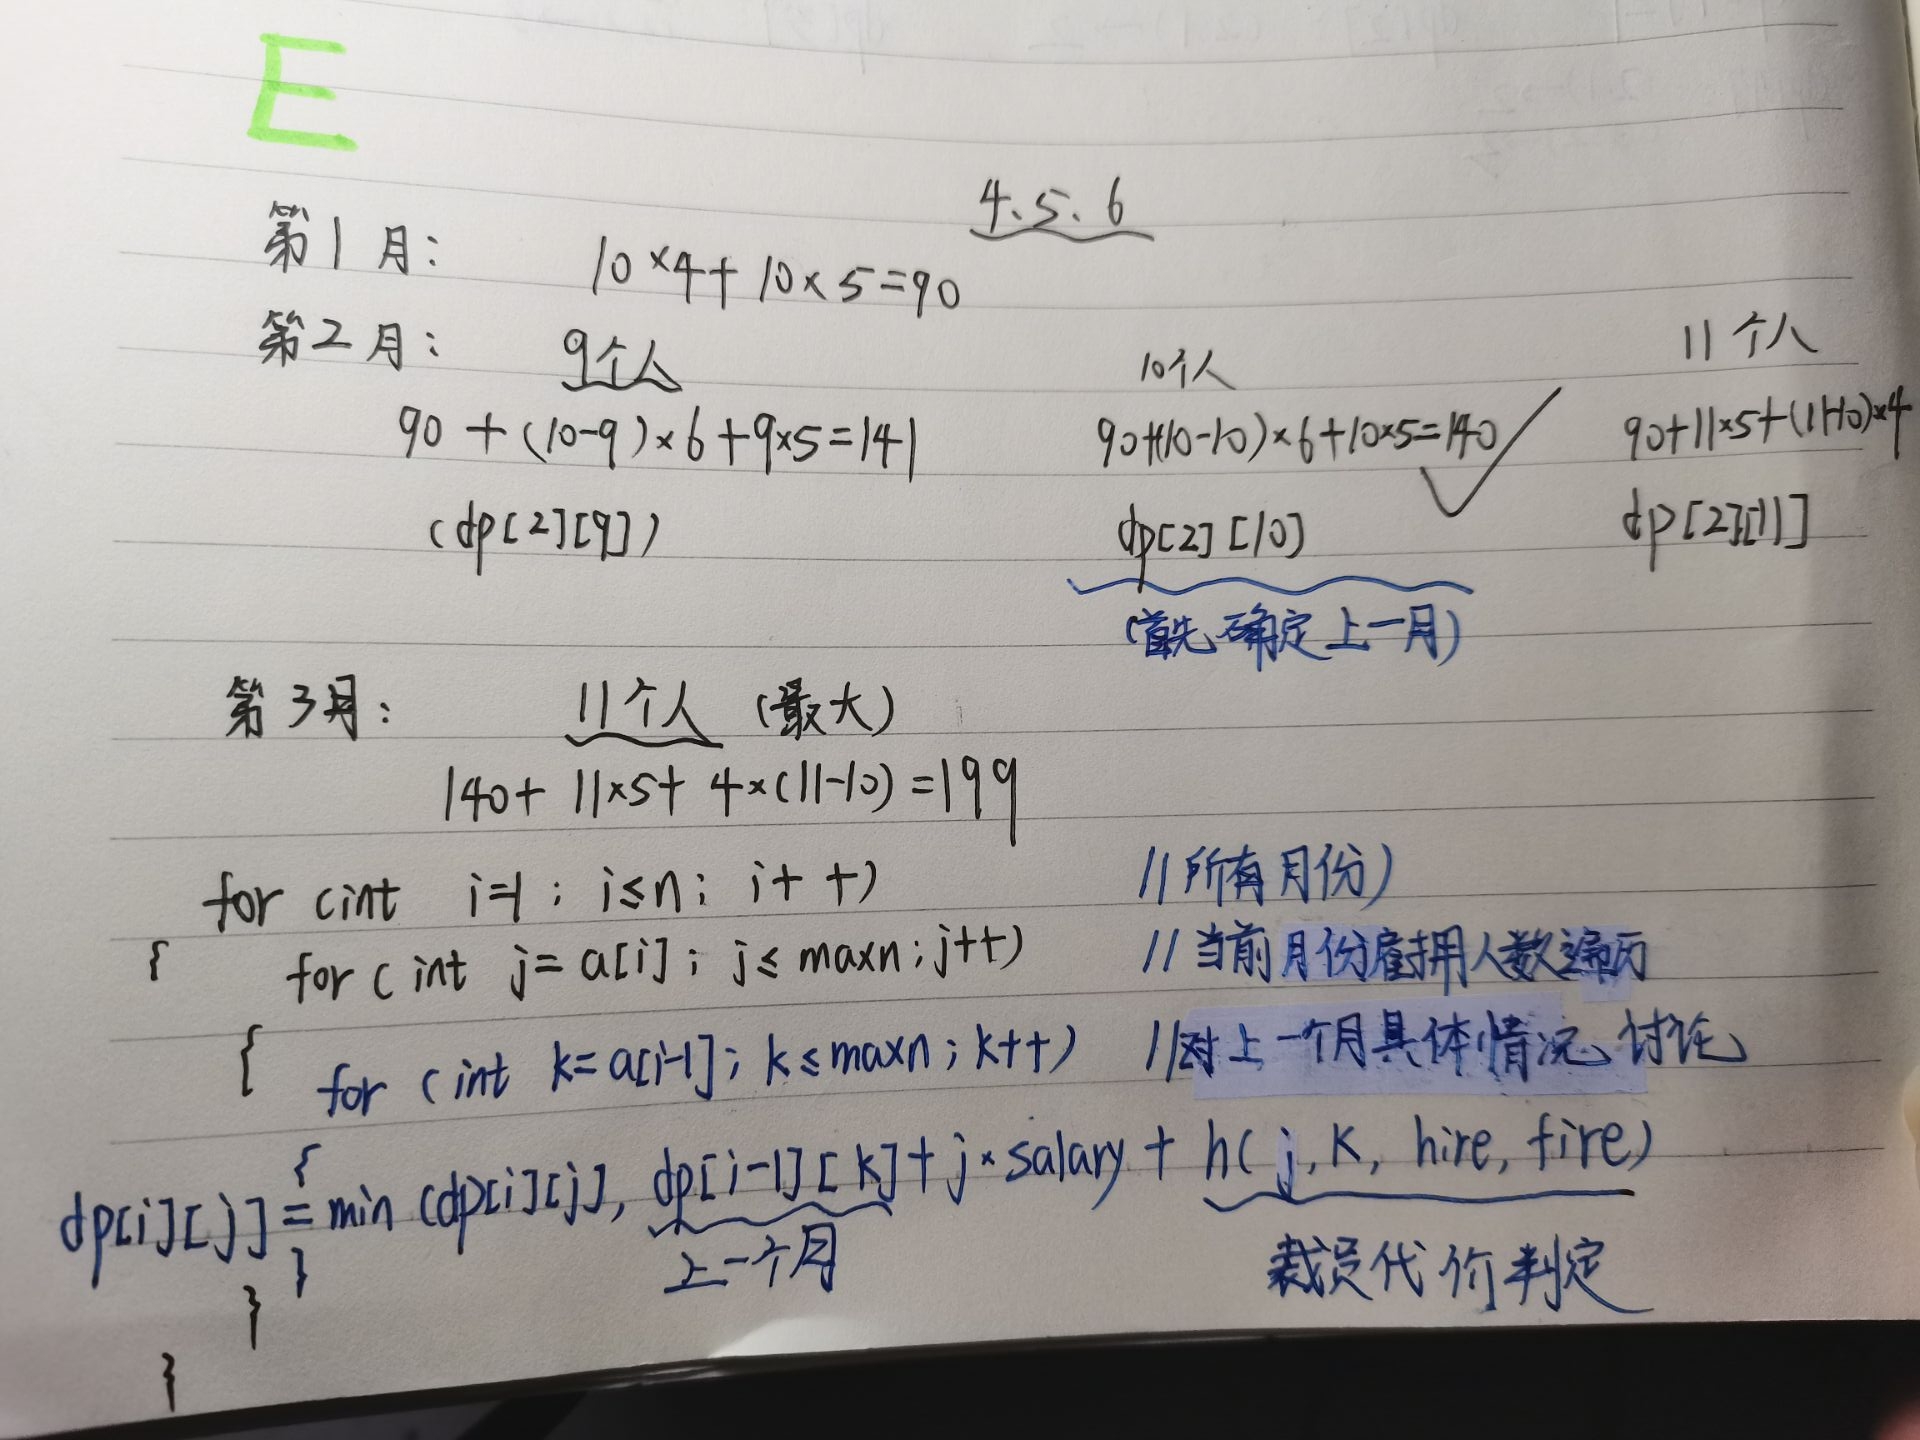 E
4、5、6
第1月： 10×4+10×5=90
第2月： 9个人 10个人 11个人
90+(10-9)×6+9×5=141 90+(10-10)×6+10×5=140 90+11×5+(11-10)×4
(dp[2][9]) dp[2][10] dp[2][11]
(首先、确定上一月)
第3月： 11个人 (最大)
140+11×5+4×(11-10)=199
for (int i=1; i≤n; i++) //所有月份)
{ for (int j=a[i]; j≤maxn; j++) //当前月份雇拥人数遍历
{ for (int k=a[i-1]; k≤maxn; k++) //对上一个月具体情况、讨论
{
dp[i][j]=min(dp[i][j], dp[i-1][k]+j×salary+h(j,k,hire,fire)
} 上一个月 裁员代价判定
}
}